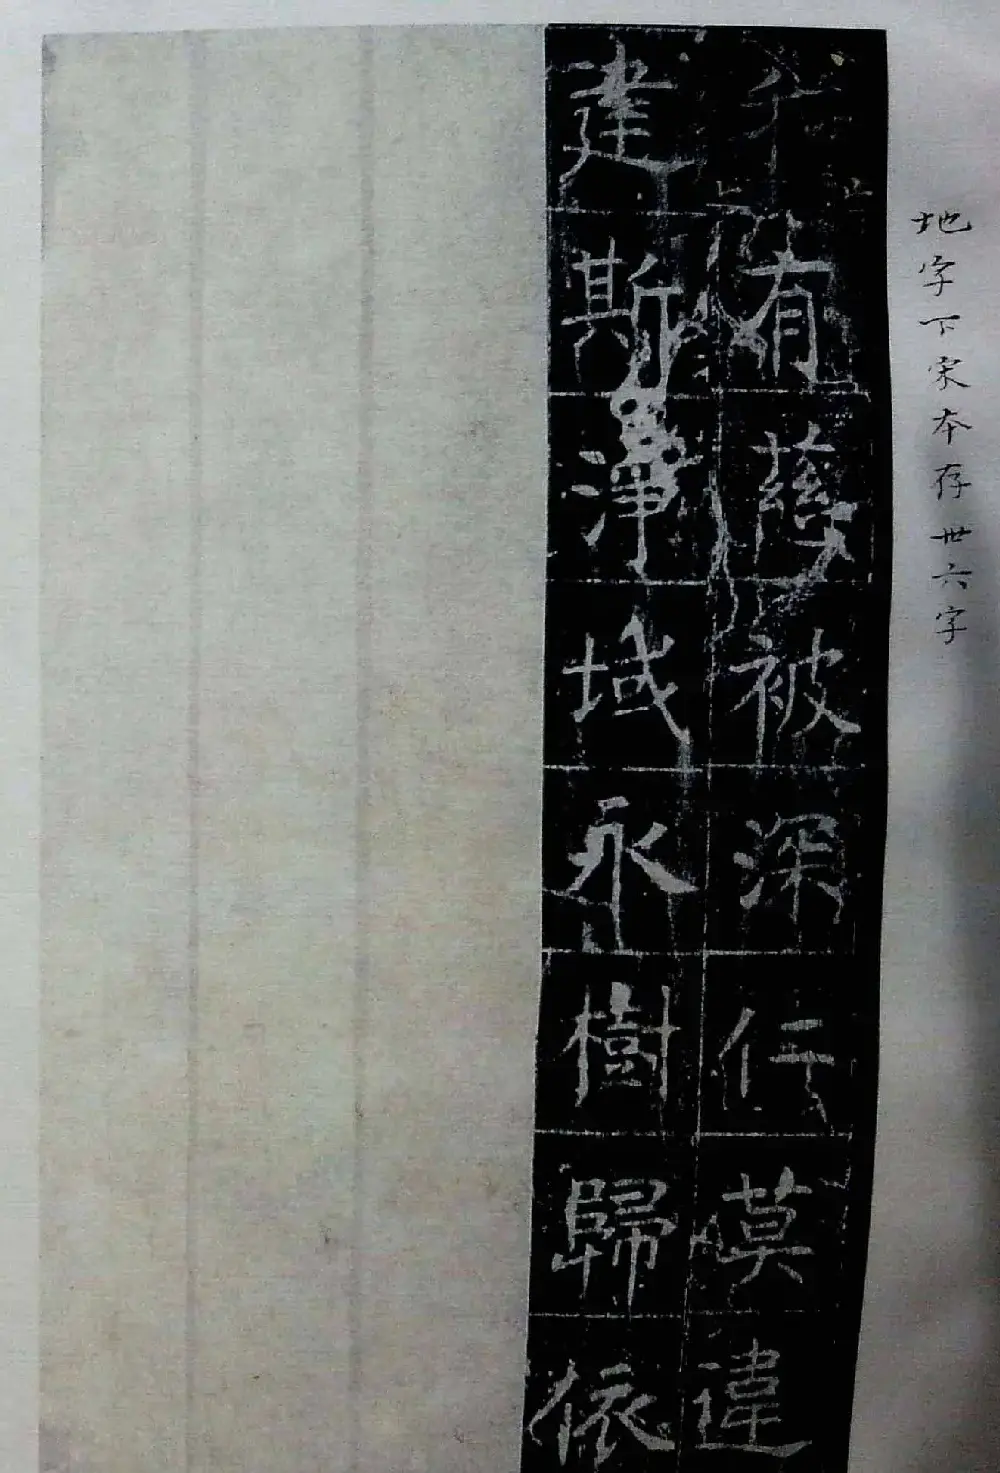 地字下宋本存卅六字
有慈被深仁莫違
建斯淨域永樹歸依